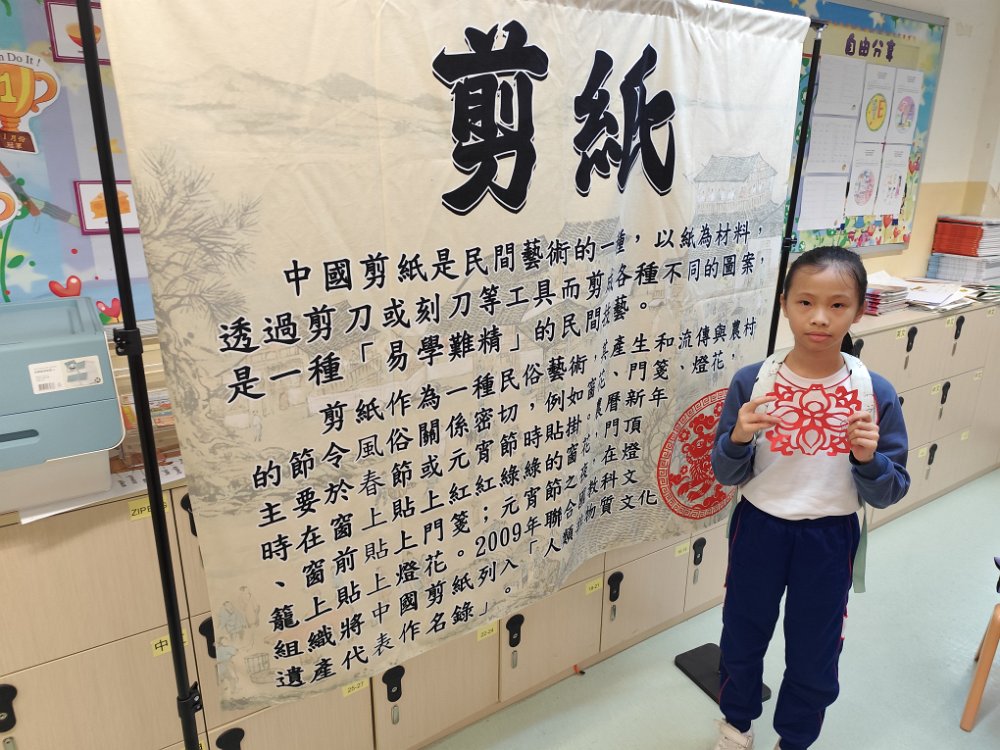 剪紙
中國剪紙是民間藝術的一種，以紙為材料，
透過剪刀或刻刀等工具而剪成各種不同的圖案，
是一種「易學難精」的民間技藝。
剪紙作為一種民俗藝術，其產生和流傳與農村
的節令風俗關係密切，例如窗花、門箋、燈花，
主要於春節或元宵節時貼掛。農曆新年
時在窗上貼上紅紅綠綠的窗花，在門頂
、窗前貼上門箋；元宵節之夜，在燈
籠上貼上燈花。2009年聯合國教科文
組織將中國剪紙列入「人類非物質文化
遺產代表作名錄」。
自由分享
n Do It !
22-24
25-27